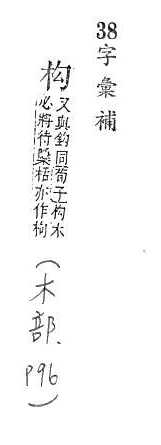 38字彙補
构
又與鉤同荀子构木
必將待檃栝亦作枸
(木部、P96)